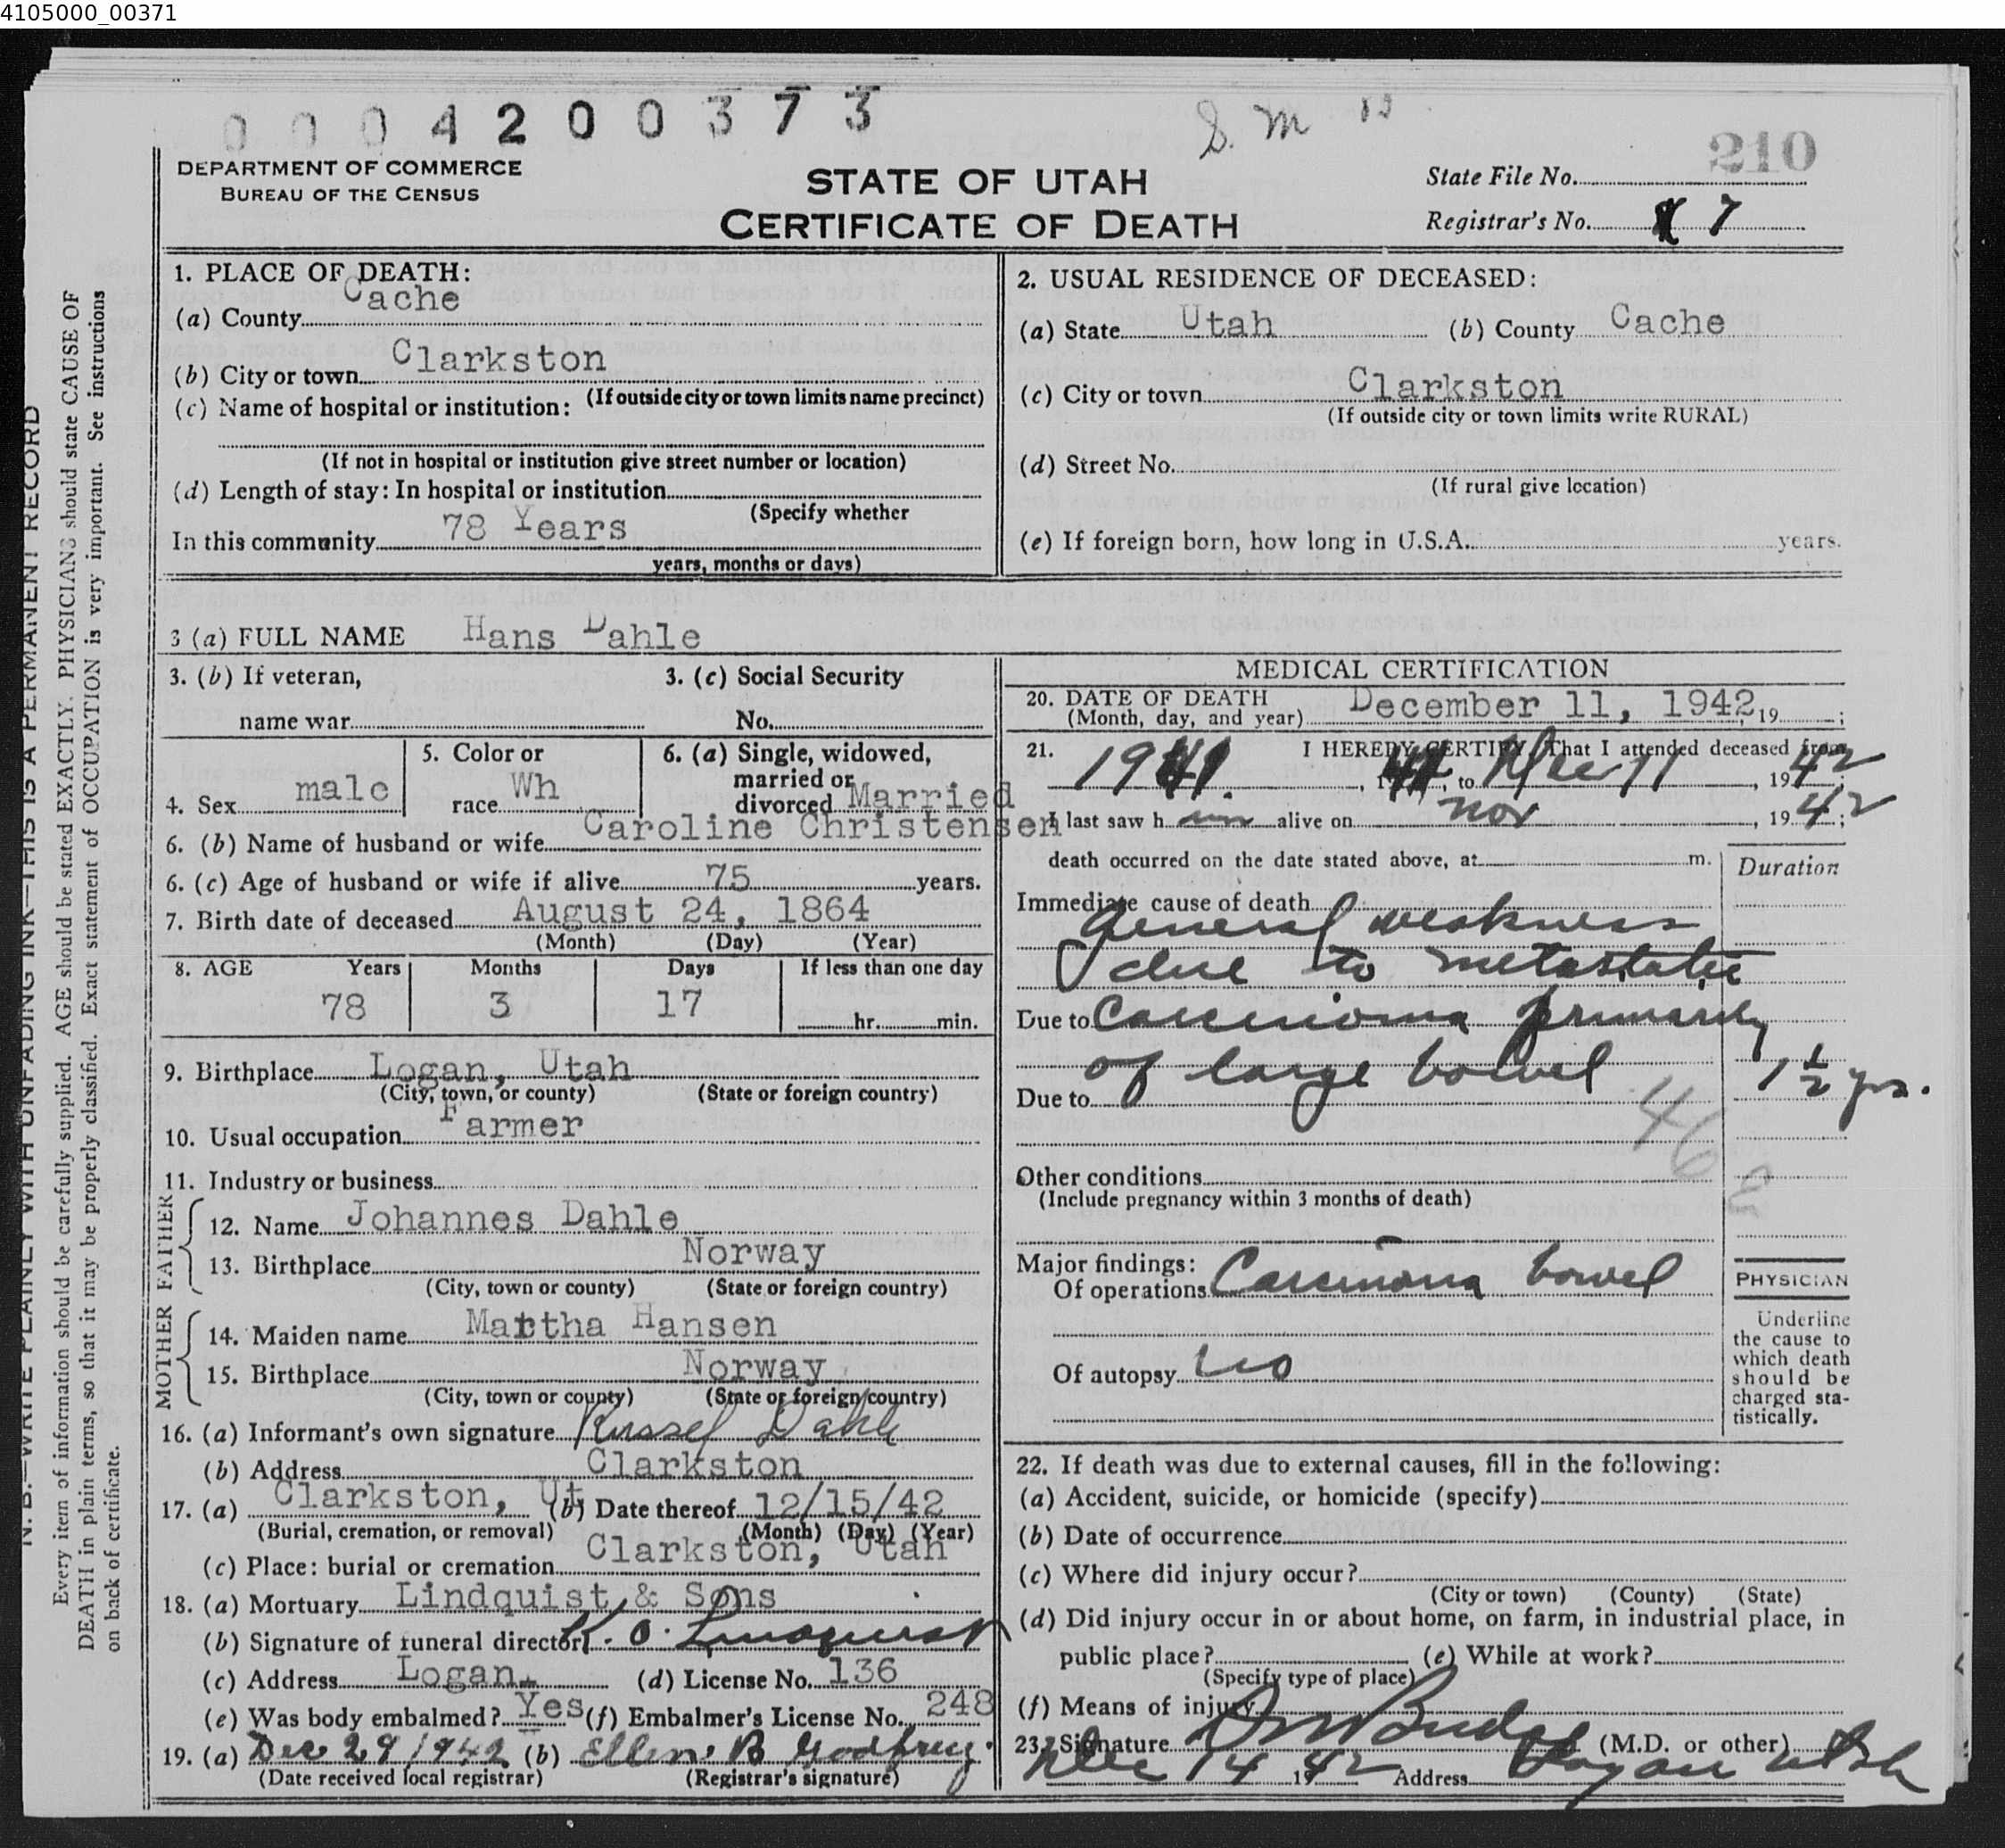 4105000_00371
0004200373
S. M
210
DEPARTMENT OF COMMERCE
BUREAU OF THE CENSUS
STATE OF UTAH
CERTIFICATE OF DEATH
State File No.
Registrar's No. 7
N. B.—WRITE PLAINLY WITH UNFADING INK—THIS IS A PERMANENT RECORD
Every item of information should be carefully supplied. AGE should be stated EXACTLY. PHYSICIANS should state CAUSE OF
DEATH in plain terms, so that it may be properly classified. Exact statement of OCCUPATION is very important. See instructions
on back of certificate.
1. PLACE OF DEATH:
(a) County Cache
(b) City or town Clarkston
(If outside city or town limits name precinct)
(c) Name of hospital or institution:
(If not in hospital or institution give street number or location)
(d) Length of stay: In hospital or institution
(Specify whether
In this community 78 Years
years, months or days)
2. USUAL RESIDENCE OF DECEASED:
(a) State Utah (b) County Cache
(c) City or town Clarkston
(If outside city or town limits write RURAL)
(d) Street No.
(If rural give location)
(e) If foreign born, how long in U.S.A. years.
3 (a) FULL NAME Hans Dahle
3. (b) If veteran,
name war
3. (c) Social Security
No.
4. Sex male
5. Color or
race Wh
6. (a) Single, widowed,
married or
divorced Married
6. (b) Name of husband or wife Caroline Christensen
6. (c) Age of husband or wife if alive 75 years.
7. Birth date of deceased August 24, 1864
(Month) (Day) (Year)
8. AGE Years Months Days If less than one day
78 3 17 hr. min.
9. Birthplace Logan, Utah
(City, town, or county) (State or foreign country)
10. Usual occupation Farmer
11. Industry or business
FATHER
12. Name Johannes Dahle
13. Birthplace Norway
(City, town or county) (State or foreign country)
MOTHER
14. Maiden name Martha Hansen
15. Birthplace Norway
(City, town or county) (State or foreign country)
16. (a) Informant's own signature Russel Dahle
(b) Address Clarkston
17. (a) Clarkston, Ut (b) Date thereof 12/15/42
(Burial, cremation, or removal) (Month) (Day) (Year)
(c) Place: burial or cremation Clarkston, Utah
18. (a) Mortuary Lindquist & Sons
(b) Signature of funeral director K. O. Lindquist
(c) Address Logan. (d) License No. 136
(e) Was body embalmed? Yes (f) Embalmer's License No. 248
19. (a) Dec 29 1942 (b) Ellen B Godfrey.
(Date received local registrar) (Registrar's signature)
MEDICAL CERTIFICATION
20. DATE OF DEATH
(Month, day, and year) December 11, 1942, 19 ;
21. I HEREBY CERTIFY, That I attended deceased from
1941, 19 , to Dec 11, 1942
I last saw him alive on Nov, 1942;
death occurred on the date stated above, at m.
Duration
Immediate cause of death
General weakness
due to metastatic
Due to Carcinoma primarily
of large bowel 1 1/2 yrs.
Due to
46 e
Other conditions
(Include pregnancy within 3 months of death)
Major findings:
Of operations Carcinoma bowel
Of autopsy no
PHYSICIAN
Underline
the cause to
which death
should be
charged sta-
tistically.
22. If death was due to external causes, fill in the following:
(a) Accident, suicide, or homicide (specify)
(b) Date of occurrence
(c) Where did injury occur?
(City or town) (County) (State)
(d) Did injury occur in or about home, on farm, in industrial place, in
public place? (e) While at work?
(Specify type of place)
(f) Means of injury
23. Signature Budge (M.D. or other)
Dec 14 1942 Address Logan Utah